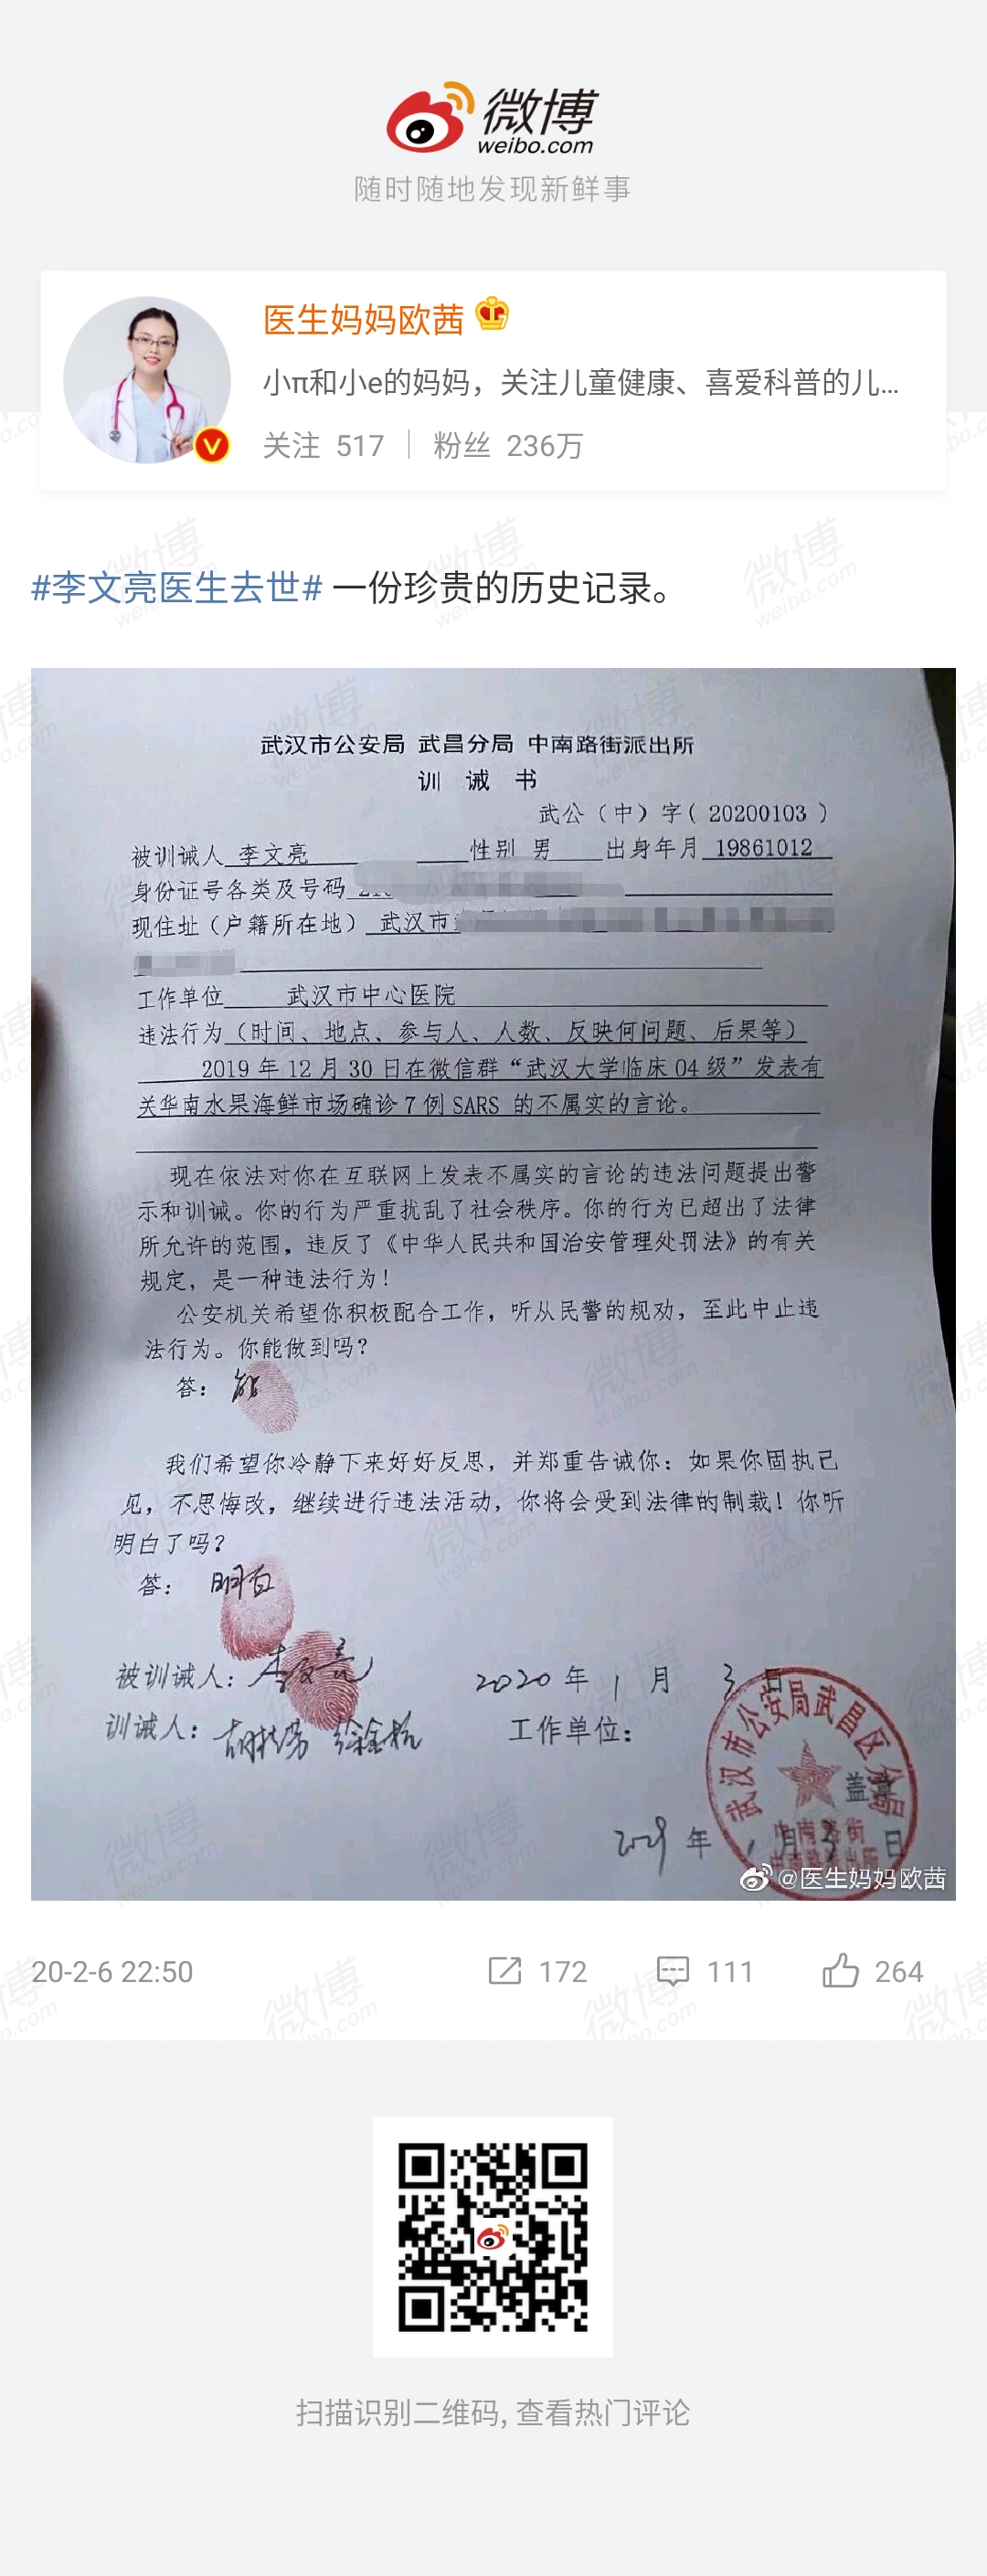 微博
weibo.com
随时随地发现新鲜事
医生妈妈欧茜
小π和小e的妈妈，关注儿童健康、喜爱科普的儿...
关注 517 | 粉丝 236万
#李文亮医生去世# 一份珍贵的历史记录。
武汉市公安局 武昌分局 中南路街派出所
训 诫 书
武公（中）字( 20200103 )
被训诫人 李文亮 性别 男 出身年月 19861012
身份证号各类及号码
现住址（户籍所在地） 武汉市
工作单位 武汉市中心医院
违法行为（时间、地点、参与人、人数、反映何问题、后果等）
2019 年 12 月 30 日在微信群“武汉大学临床 04 级”发表有
关华南水果海鲜市场确诊 7 例 SARS 的不属实的言论。
现在依法对你在互联网上发表不属实的言论的违法问题提出警
示和训诫。你的行为严重扰乱了社会秩序。你的行为已超出了法律
所允许的范围，违反了《中华人民共和国治安管理处罚法》的有关
规定，是一种违法行为！
公安机关希望你积极配合工作，听从民警的规劝，至此中止违
法行为。你能做到吗？
答： 能
我们希望你冷静下来好好反思，并郑重告诫你：如果你固执己
见，不思悔改，继续进行违法活动，你将会受到法律的制裁！你听
明白了吗？
答： 明白
被训诫人：李文亮 2020 年 1 月 3 日
训诫人： 工作单位：
武汉市公安局武昌区分局
盖章
中南路街
年 1 月 3 日
@医生妈妈欧茜
20-2-6 22:50 172 111 264
扫描识别二维码, 查看热门评论